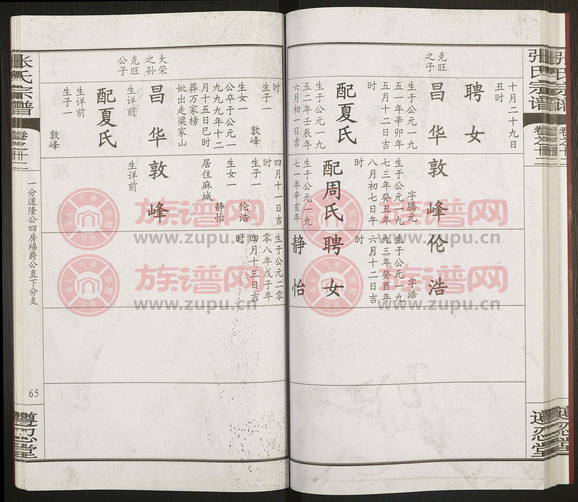 张氏宗谱
卷之廿二
遵忍堂
十月二十九日
丑时
聘女
克旺
之子
昌华
生于公元一九
五一年辛卯年
时
配夏氏
生于公元一九
五二年壬辰年
六月初一日吉
时
生子一
敦峰
生女一
公卒于公元一
九九九年十二
月十五日巳时
葬万家榜
妣出走梁家山
敦峰
字腾元
生于公元一九
七三年癸丑年
八月初七日午
时
配周氏
生于公元一九
七一年辛亥年
四月十一日吉
时
生子一
伦浩
生女一
静怡
居住麻城
伦浩
字浩
生于公元一九
九三年癸酉年
六月十二日吉
时
聘女
静怡
生于公元二零
零八年戊子年
四月十三日吉
时
大荣
之孙
克旺
公子
昌华
生详前
配夏氏
生详前
生子一
敦峰
敦峰
生详前
张氏宗谱
卷之廿二
一分道隆公四房福爵公直下分支
65
遵忍堂
族谱网
www.zupu.cn
族谱网
www.zupu.cn
族谱网
www.zupu.cn
族谱网
www.zupu.cn